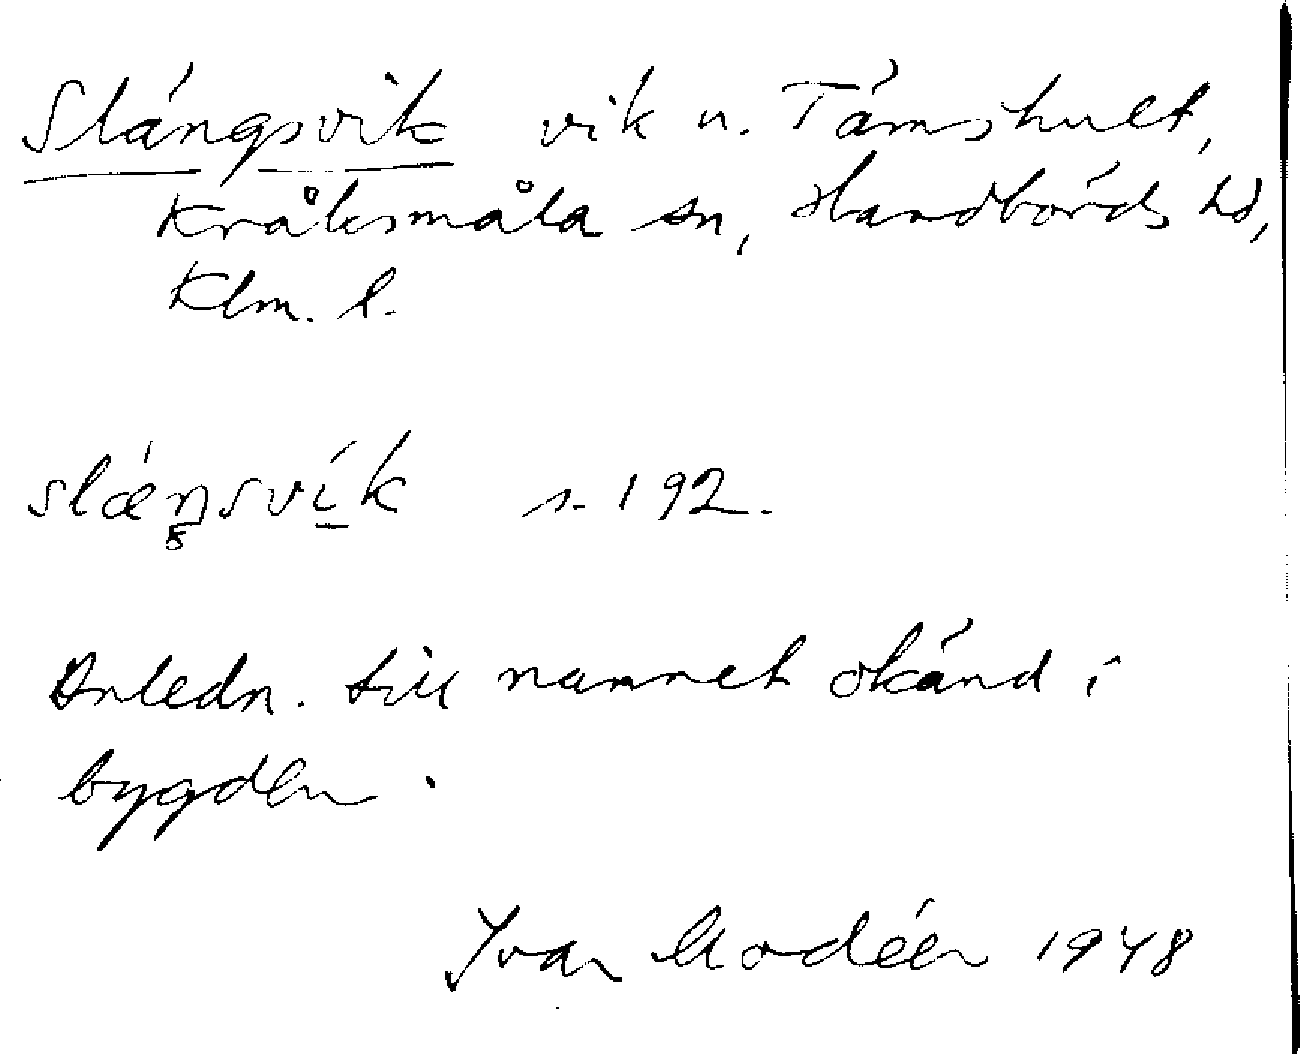 Slängsvik vik v. Tämshult,
Kråksmåla sn, Handbörds hd,
Klm. l.
slæŋsvík s. 192.
Anledn. till namnet okänd i
bygden.
Ivar Modéer 1948